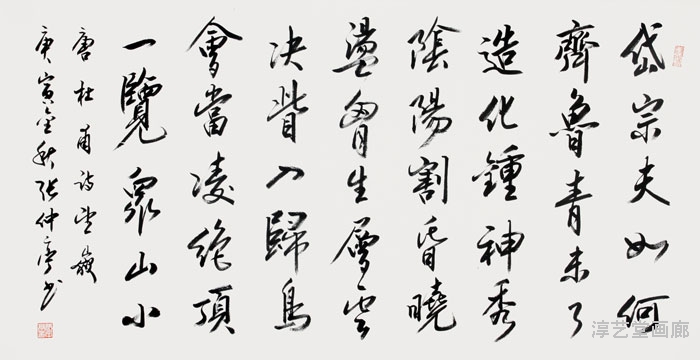 岱宗夫如何
齊魯青未了
造化鍾神秀
陰陽割昏曉
盪胷生層雲
决眥入歸鳥
會當凌絶頂
一覽衆山小
唐杜甫诗望嶽
庚寅金秋張仲亭书
淳艺堂画廊